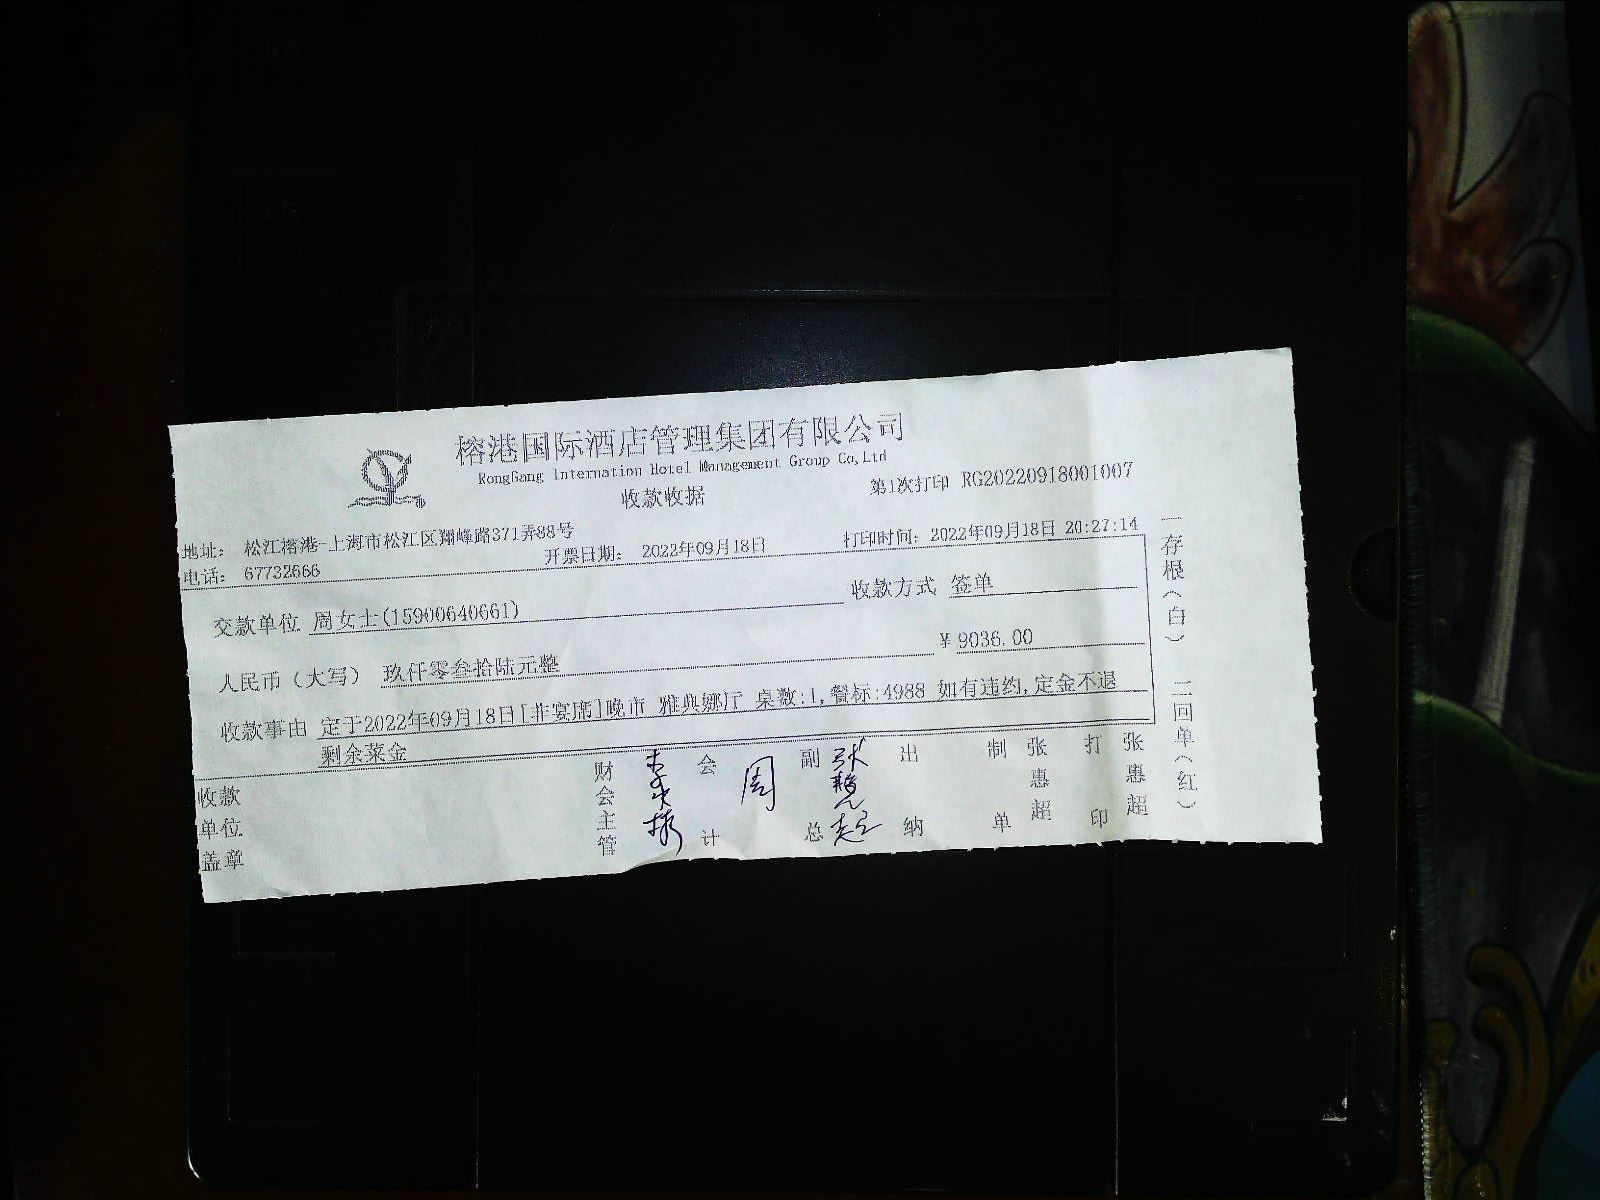 榕港国际酒店管理集团有限公司
RongGang Internation Hotel Management Group Co,Ltd
收款收据
第1次打印 RG20220918001007
地址： 松江榕港-上海市松江区翔峰路371弄88号
电话： 67732666
开票日期： 2022年09月18日
打印时间： 2022年09月18日 20:27:14
交款单位 周女士(15900640661)
收款方式 签单
人民币（大写） 玖仟零叁拾陆元整
¥ 9036.00
收款事由 定于2022年09月18日[非宴席]晚市 雅典娜厅 桌数:1,餐标:4988 如有违约,定金不退
剩余菜金
收款
单位
盖章
财会主管
会计 周
副总 张慧超
出纳
制单 张惠超
打印 张惠超
一存根（白）
二回单（红）